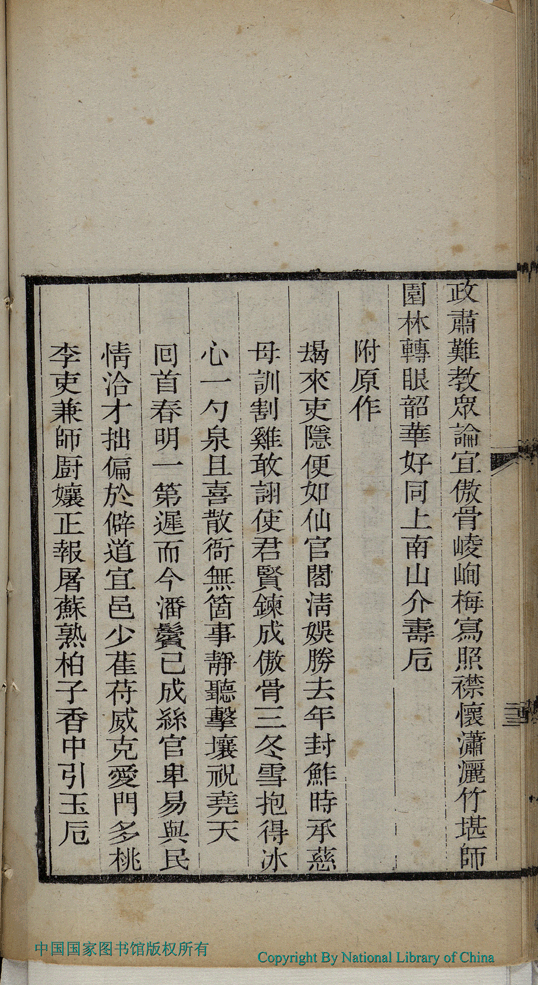 政肅難教眾論宜傲骨崚峋梅寫照襟懷瀟灑竹堪師
園林轉眼韶華好同上南山介壽卮
附原作
朅來吏隱便如仙官閣淸娛勝去年封鮓時承慈
母訓割雞敢詡使君賢鍊成傲骨三冬雪抱得冰
心一勺泉且喜散衙無箇事靜聽擊壤祝堯天
回首春明一第遲而今潘鬢已成絲官卑易與民
情洽才拙偏於僻道宜邑少萑苻威克愛門多桃
李吏兼師厨孃正報屠蘇熟柏子香中引玉卮
中国国家图书馆版权所有
Copyright By National Library of China